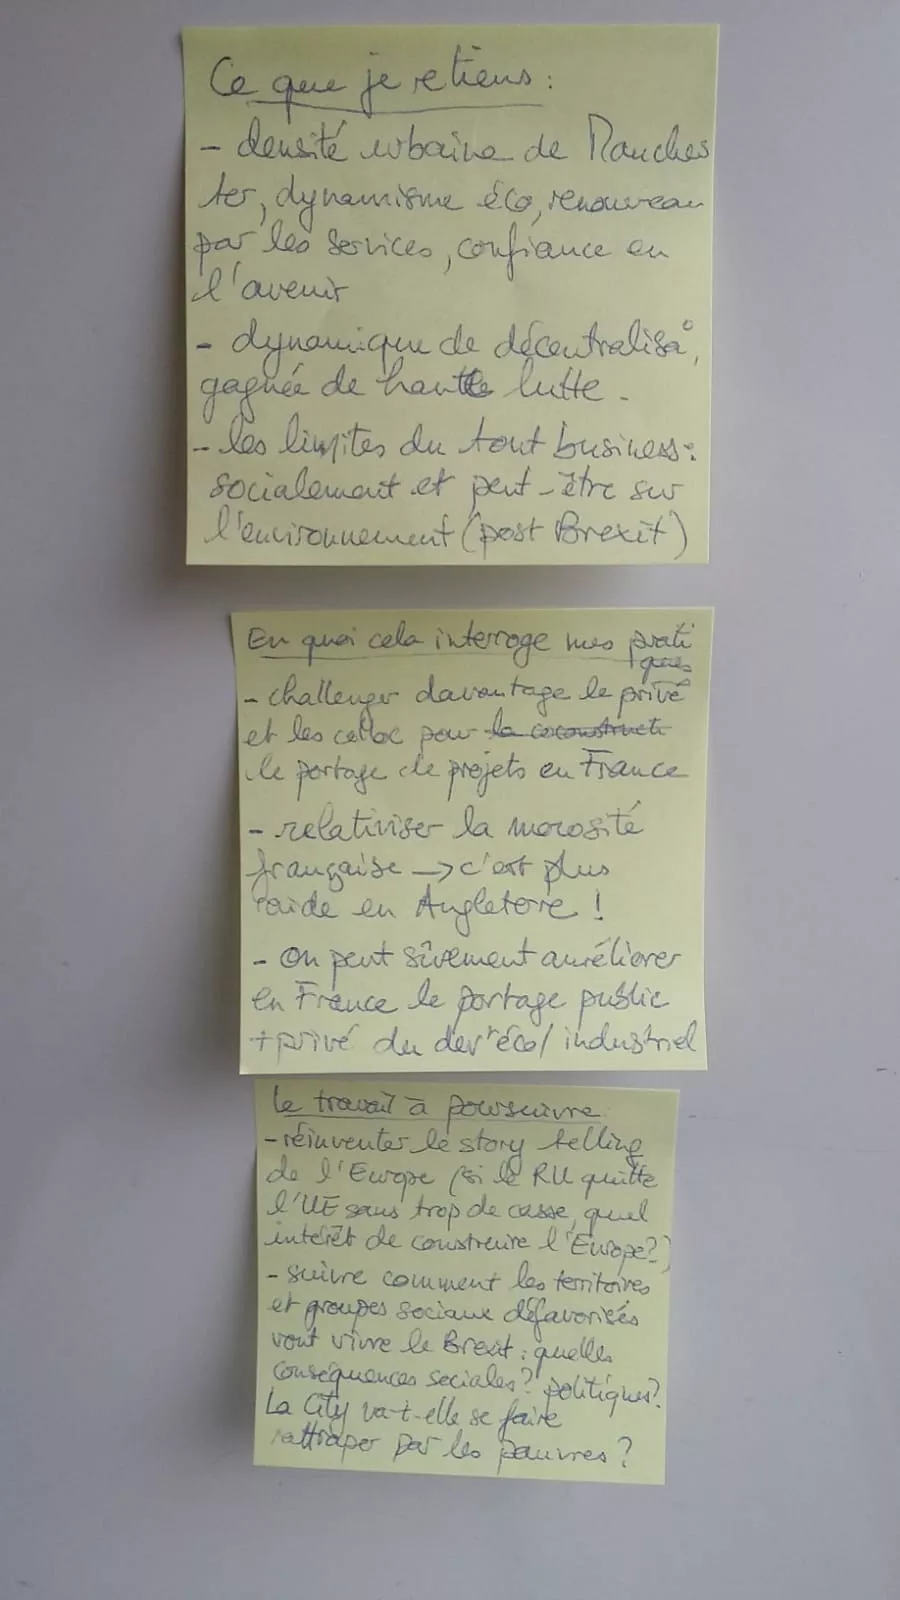 Ce que je retiens :
- densité urbaine de Manches
ter, dynamisme éco, renouveau
par les services, confiance en
l'avenir
- dynamique de décentralisa°,
gagnée de haute lutte.
- les limites du tout business :
socialement et peut-être sur
l'environnement (post Brexit)
En quoi cela interroge mes prati
ques
- challenger davantage le privé
et les colloc pour la coconstructi
le portage de projets en France
- relativiser la morosité
française → c'est plus
raide en Angleterre !
- On peut sûrement améliorer
en France le portage public
+ privé du devt éco/ industriel
Le travail à poursuivre
- réinventer le story telling
de l'Europe (si le RU quitte
l'UE sans trop de casse, quel
intérêt de construire l'Europe?)
- suivre comment les territoires
et groupes sociaux défavorisés
vont vivre le Brexit : quelles
conséquences sociales? politiques?
La City va-t-elle se faire
rattraper par les pauvres ?